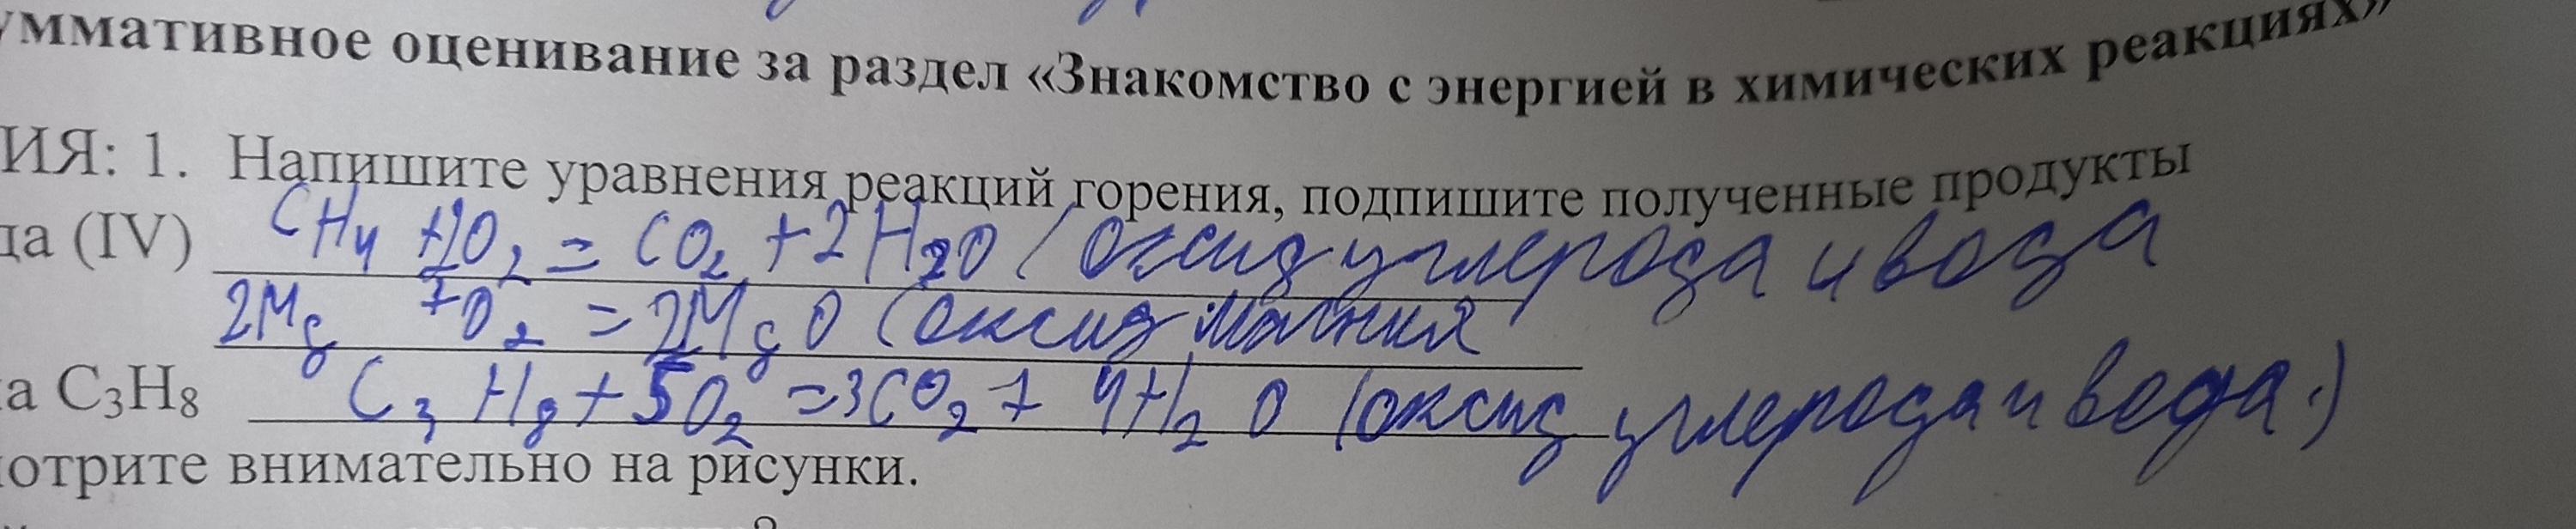 уммативное оценивание за раздел «Знакомство с энергией в химических реакциях»
ИЯ: 1. Напишите уравнения реакций горения, подпишите полученные продукты
да (IV) CH4 +2O2 = CO2 + 2H2O (оксид углерода и вода
2Mg +O2 = 2MgO (оксид магния
а C3H8 C3H8 + 5O2 = 3CO2 + 4H2O (оксид углерода и вода.)
отрите внимательно на рисунки.